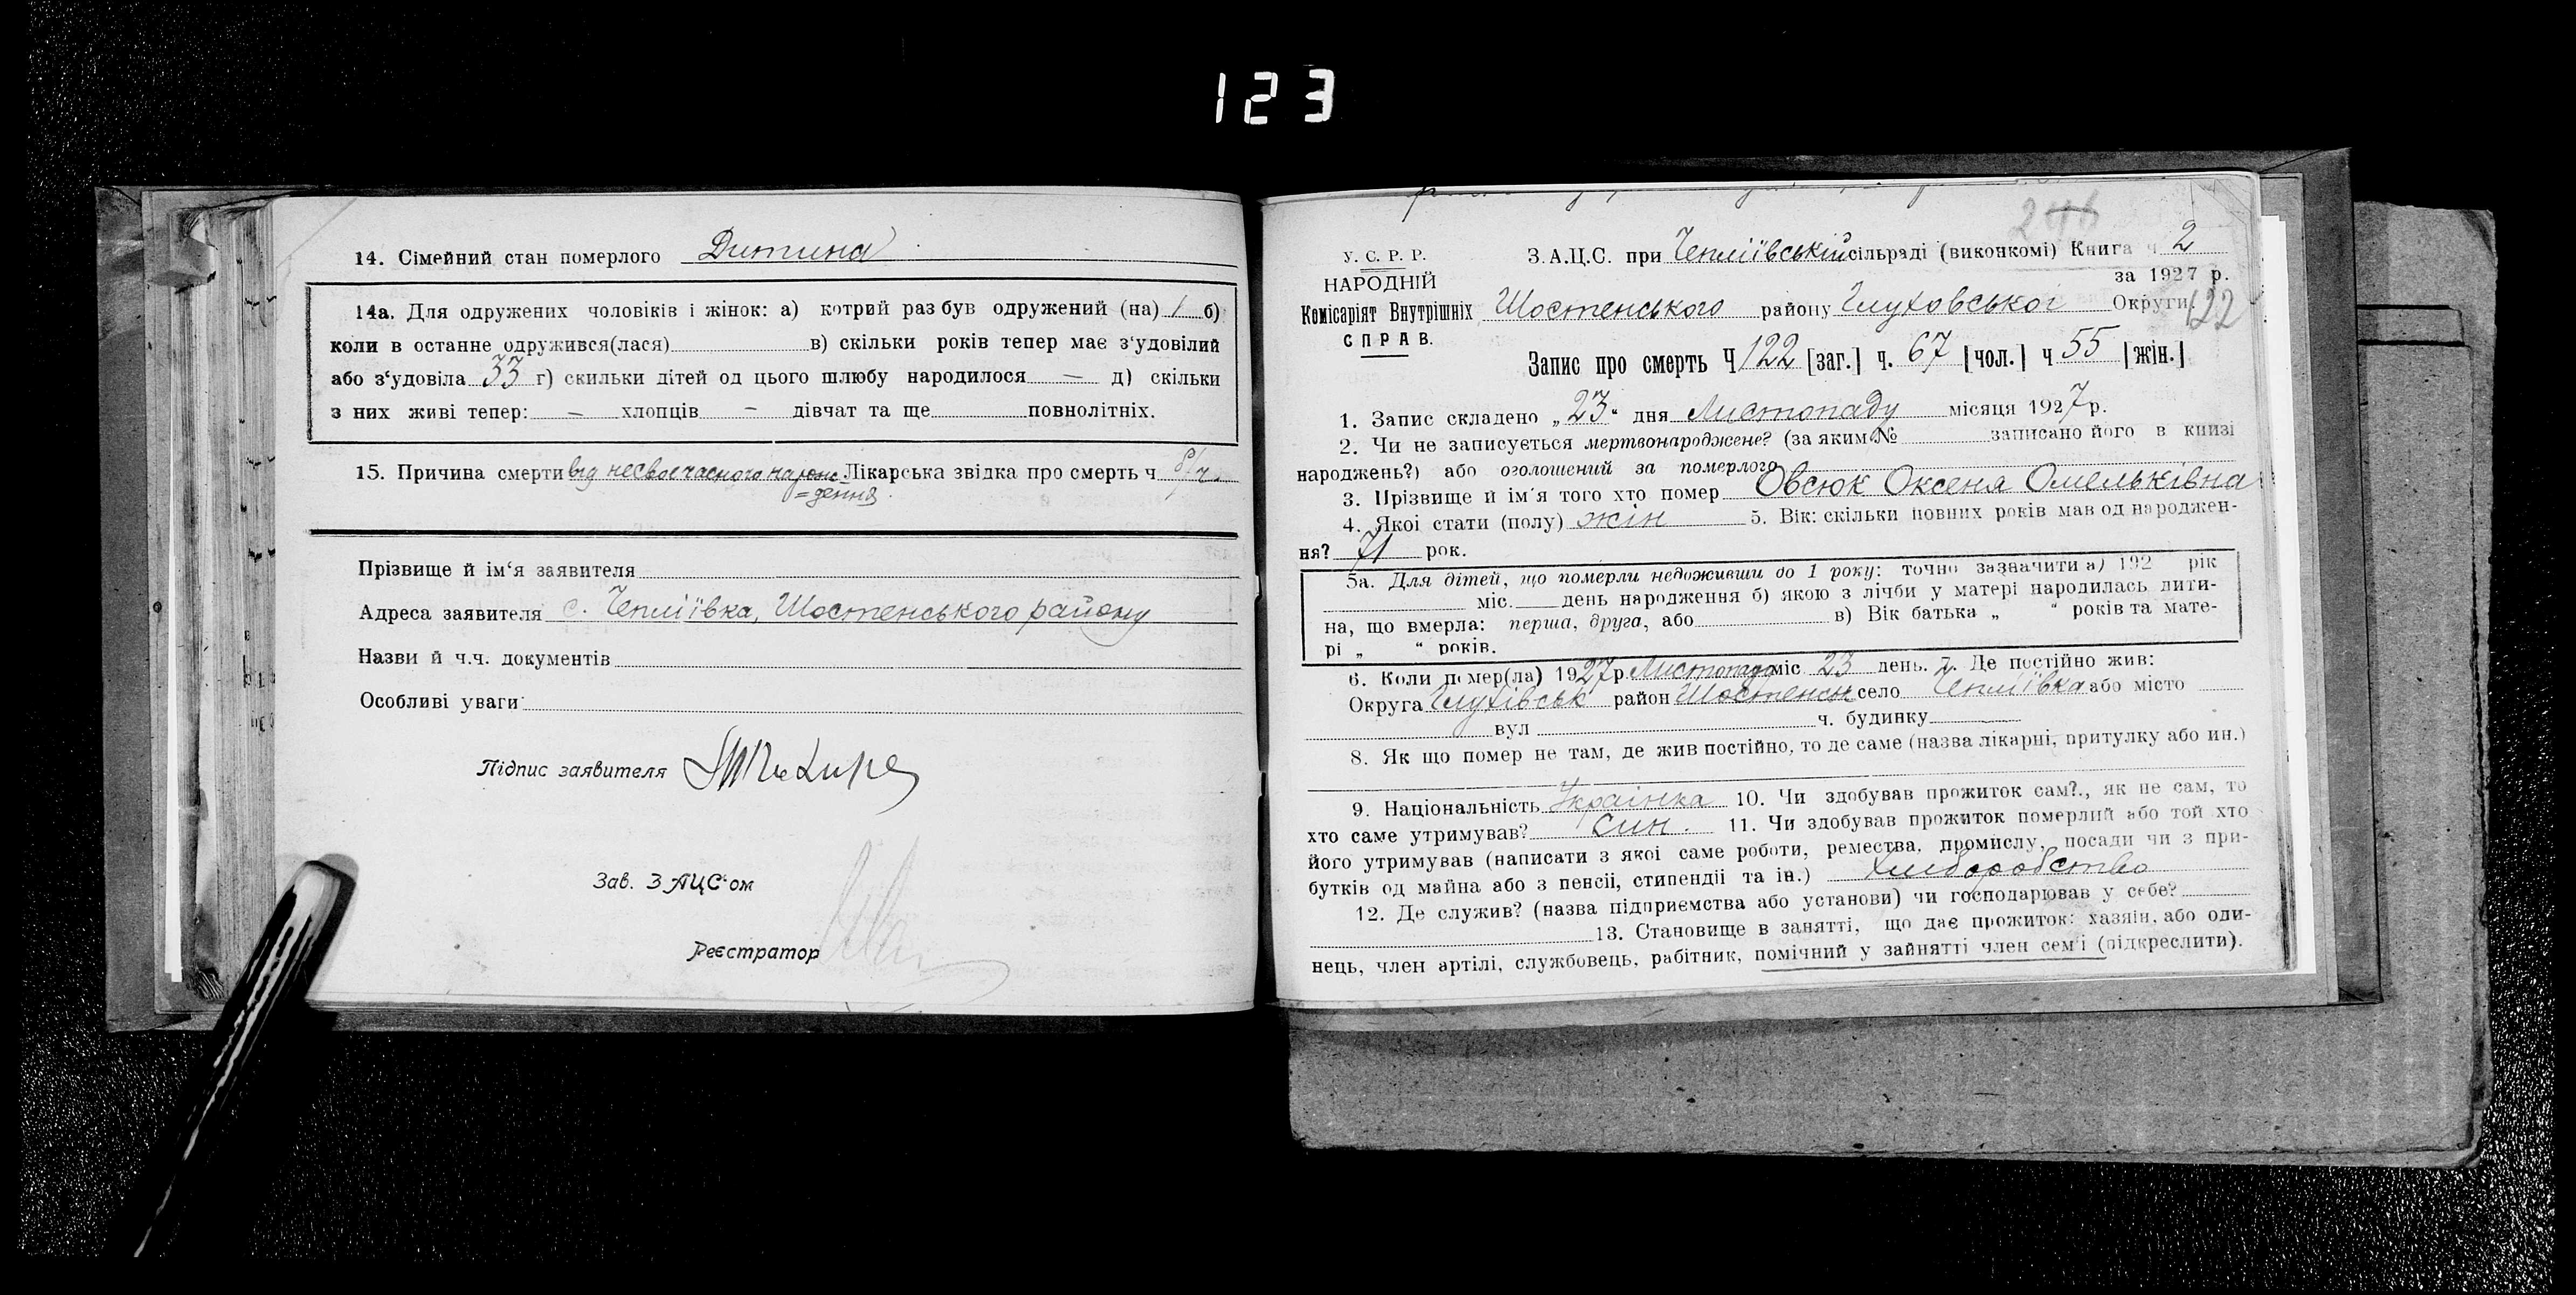 123
14. Сімейний стан померлого Дитина
14а. Для одружених чоловіків і жінок: а) котрий раз був одружений (на) 1 б)
коли в останне одружився(лася) в) скільки років тепер має з‘удовілий
або з‘удовіла 33 г) скильки дітей од цього шлюбу народилося — д) скільки
з них живі тепер: — хлопців — дівчат та ще повнолітніх.
15. Причина смерти від несвоєчасного народж= Лікарська звідка про смерть ч
=дення.
Прізвище й ім‘я заявителя
Адреса заявителя с. Чепліївка, Шостенського району
Назви й ч.ч. документів
Особливі уваги
Підпис заявителя
Зав. ЗАЦС‘ом
Реєстратор
У. С. Р. Р.
НАРОДНІЙ
Комісаріят Внутрішніх
СПРАВ.
246
З.А.Ц.С. при Чепліївській сільраді (виконкомі) Книга ч 2
за 1927 р.
Шостенського району Глуховської Округи 122
Запис про смерть Ч 122 [заг.] ч. 67 [чол.] ч 55 [жін.]
1. Запис складено „23“ дня Листопаду місяця 1927 р.
2. Чи не записується мертвонароджене? (за яким № записано його в книзі
народжень?) або оголошений за померлого
3. Прізвище й ім‘я того хто помер Овсюк Оксеня Омельківна
4. Якоі стати (полу) жін 5. Вік: скільки повних років мав од народжен-
ня? 71 рок.
5а. Для дітей, що померли недоживши до 1 року: точно зазначити а) 192 рік
міс. день народження б) якою з лічби у матері народилась дити-
на, що вмерла: перша, друга, або в) Вік батька „ “ років та мате-
рі „ “ років.
6. Коли помер(ла) 1927 р Листопада міс 23 день. 7. Де постійно жив:
Округа Глухівськ район Шостенськ село Чепліївка або місто
вул ч. будинку
8. Як що помер не там, де жив постійно, то де саме (назва лікарні, притулку або ин.)
9. Національність Українка 10. Чи здобував прожиток сам?., як не сам, то
хто саме утримував? син. 11. Чи здобував прожиток померлий або той хто
його утримував (написати з якоі саме роботи, ремества, промислу, посади чи з при-
бутків од майна або з пенсіі, стипендіі та ін.) Хліборобство
12. Де служив? (назва підприємства або установи) чи господарював у себе?
13. Становище в занятті, що дає прожиток: хазяін, або оди-
нець, член артілі, службовець, рабітник, помічний у зайнятті член сем‘і (підкреслити).